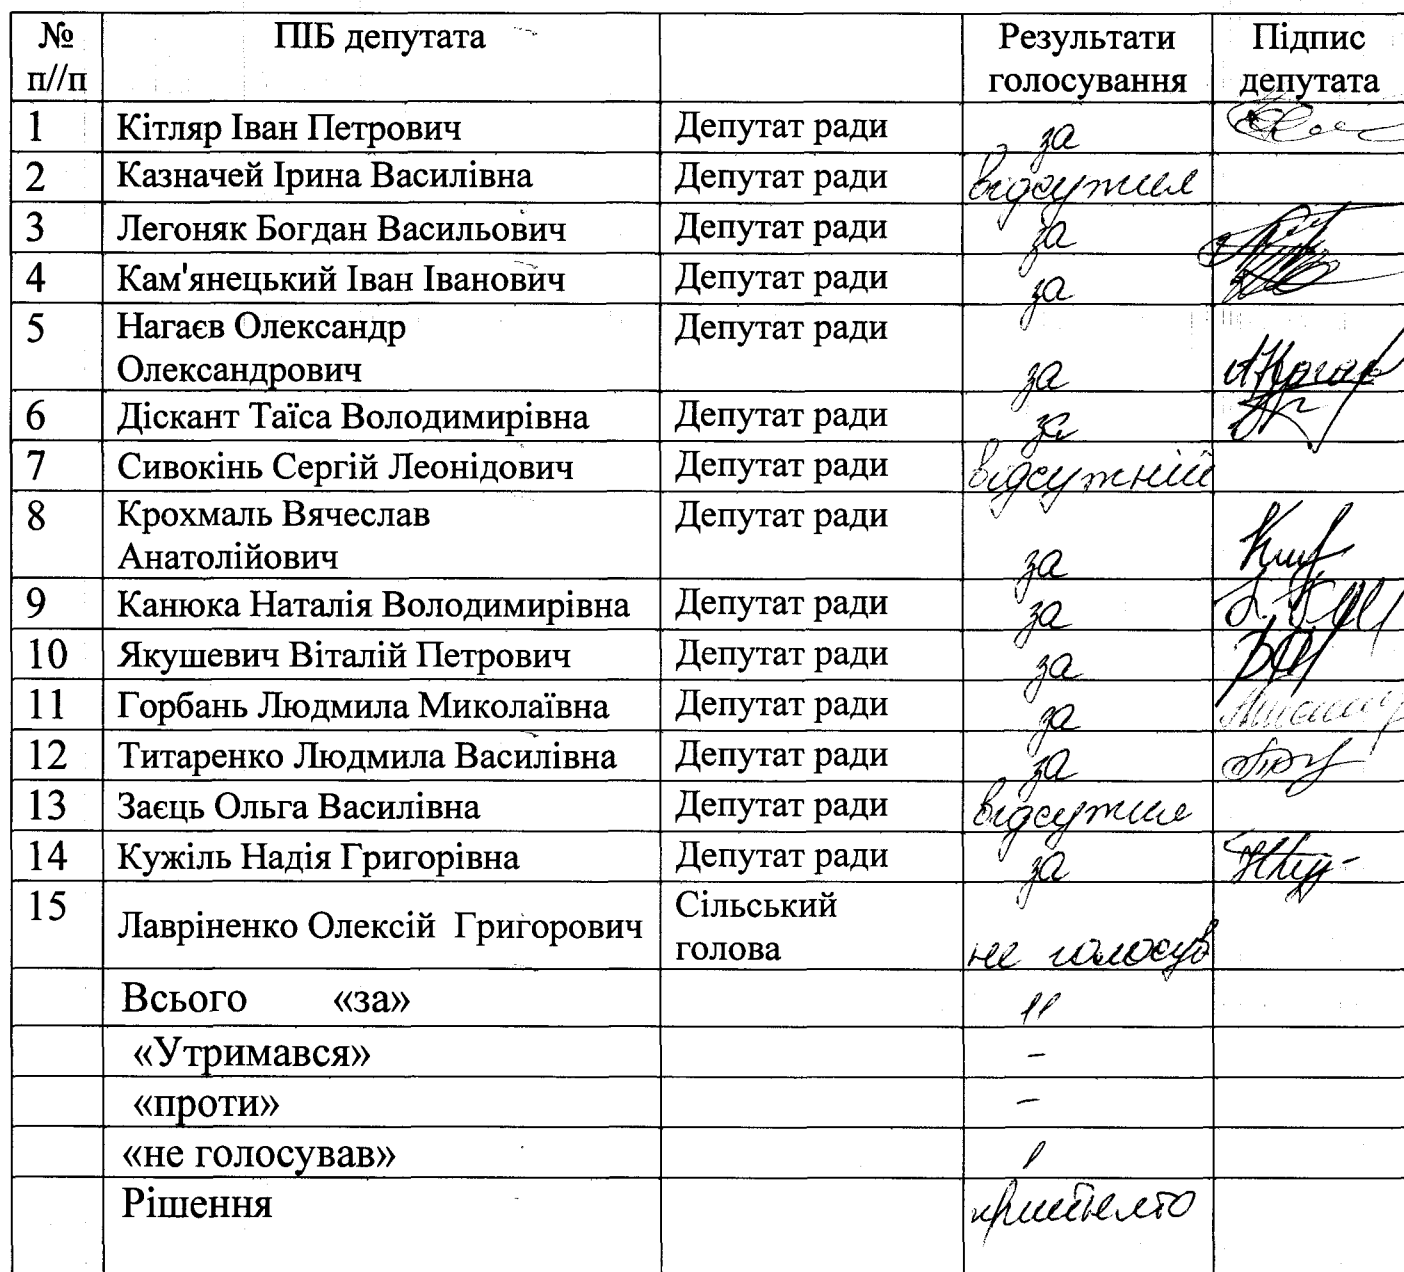 № п//п ПІБ депутата Результати голосування Підпис депутата
1 Кітляр Іван Петрович Депутат ради за
2 Казначей Ірина Василівна Депутат ради відсутня
3 Легоняк Богдан Васильович Депутат ради за
4 Кам'янецький Іван Іванович Депутат ради за
5 Нагаєв Олександр Депутат ради
Олександрович за
6 Діскант Таїса Володимирівна Депутат ради за
7 Сивокінь Сергій Леонідович Депутат ради відсутній
8 Крохмаль Вячеслав Депутат ради
Анатолійович за
9 Канюка Наталія Володимирівна Депутат ради за
10 Якушевич Віталій Петрович Депутат ради за
11 Горбань Людмила Миколаївна Депутат ради за
12 Титаренко Людмила Василівна Депутат ради за
13 Заєць Ольга Василівна Депутат ради відсутня
14 Кужіль Надія Григорівна Депутат ради за
15 Лавріненко Олексій Григорович Сільський голова не голосув
Всього «за» 11
«Утримався» -
«проти» -
«не голосував» 1
Рішення прийнято